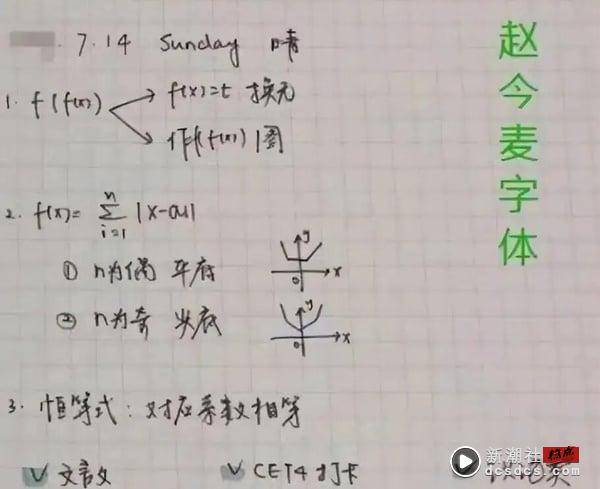 7.14 Sunday 晴
赵今麦字体
1. f(f(x)) → f(x)=t 换元
→ 作f(f(x))图
2. f(x)= \sum_{i=1}^{n} |x-ai|
① n为偶 平底
y
x
0
② n为奇 尖底
y
x
0
3. 恒等式: 对应系数相等
√ 文言文 √ CET4 打卡
新潮社 热点
dcsdcs.com